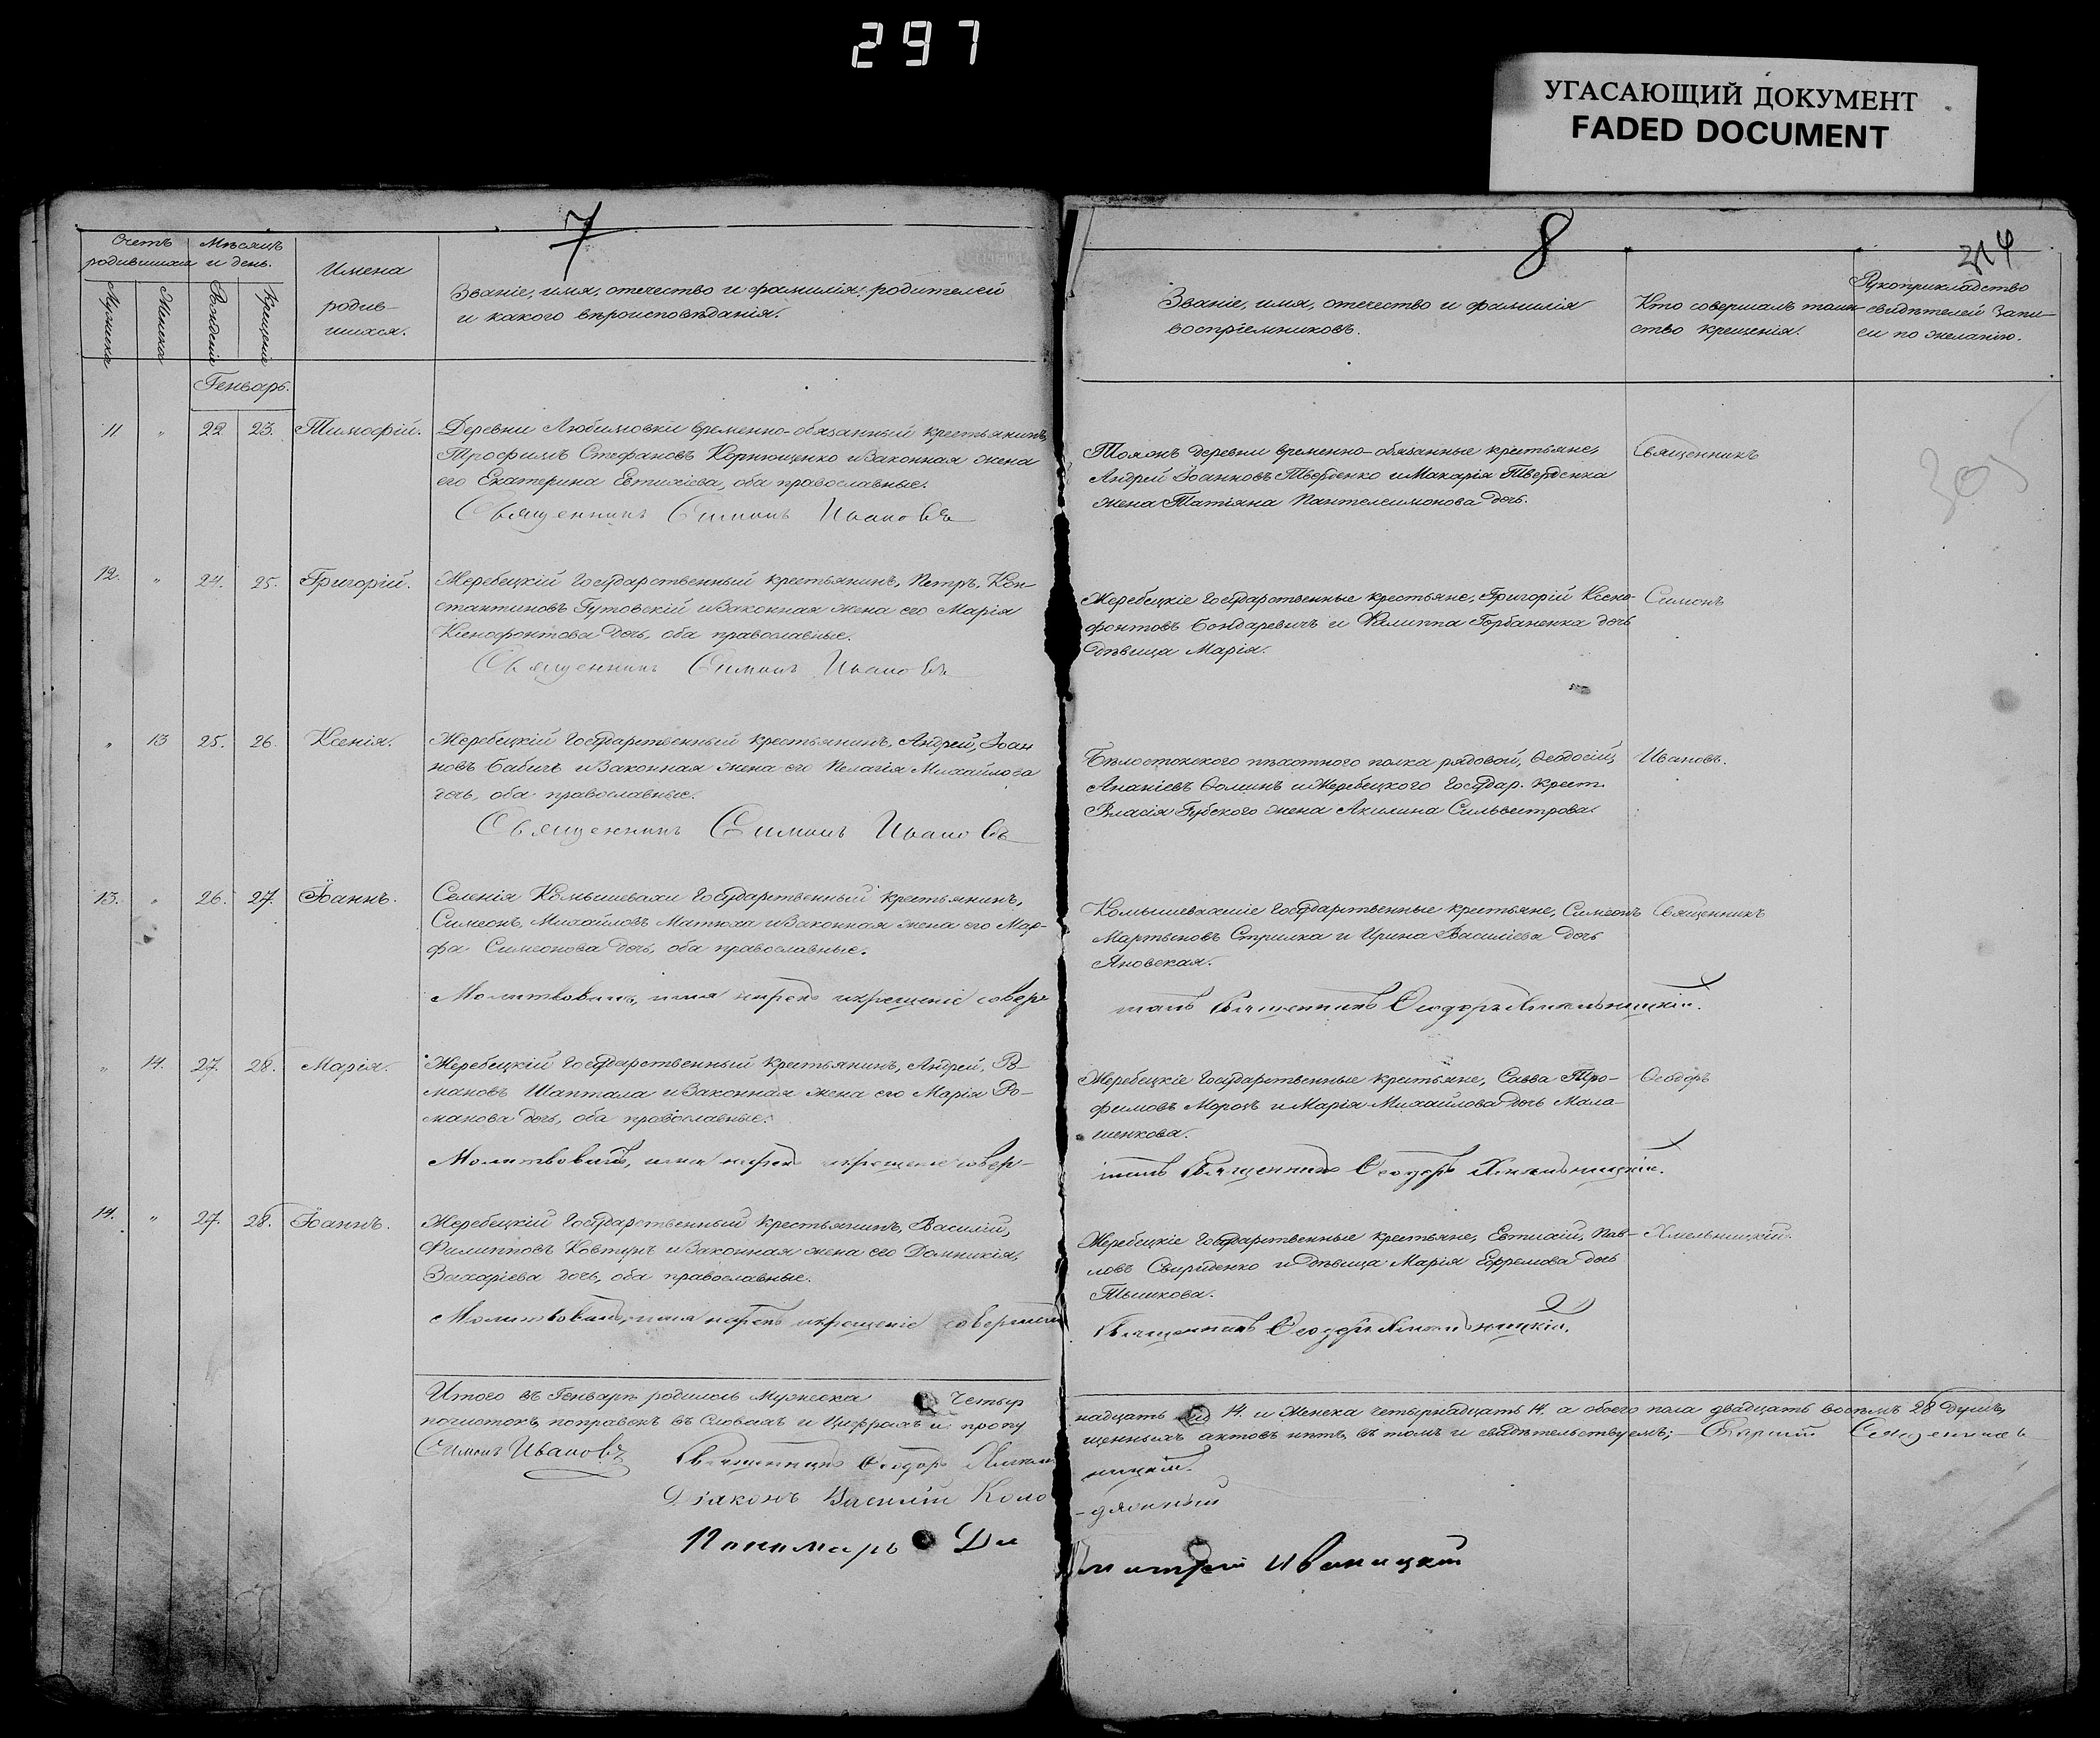 297
УГАСАЮЩИЙ ДОКУМЕНТ
FADED DOCUMENT
7
8
Счетъ родившихся
Мѣсяцъ и день.
Мужеска
Женска
Рожденія
Крещенія
Имена
родив-
шихся.
Званіе, имя, отчество и фамилія родителей
и какого вѣроисповѣданія.
Званіе, имя, отчество и фамилія
воспріемниковъ.
Кто совершалъ таин-
ство крещенія.
Рукоприкладство
свидѣтелей запи-
си по желанію.
Генварь.
11 " 22 23. Тимофій.
Деревни Любимовки временно-обязанный крестьянинъ,
Трофимъ Стефановъ Корнющенко и законная жена
его Екатерина Евтихіева, оба православные.
Священникъ Симонъ Ивановъ
Тояжъ деревни временно-обязанные крестьяне,
Андрей Іоанновъ Твердненко и Макарія Твердненка
жена Татіяна Пантелеимонова дочь.
Священникъ
305
12. " 24. 25. Григорій.
Жеребецкій Государственный крестьянинъ, Петръ, Кон-
стантиновъ Гутовскій и законная жена его Марія
Ксенофонтова дочь, оба православные.
Священникъ Симонъ Ивановъ
Жеребецкіе Государственные крестьяне, Григорій Ксено-
фонтовъ Бондаревичъ и Филиппа Горбаненка дочь
дѣвица Марія.
Симонъ
" 13 25. 26. Ксенія.
Жеребецкій Государственный крестьянинъ, Андрей, Іоан
новъ Бабичъ и законная жена его Пелагія Михайлова
дочь, оба православные.
Священникъ Симонъ Ивановъ
Бѣлостокского пѣхотного полка рядовой, Ѳеодосій,
Ананіевъ Ѳоминъ и Жеребецкого Государ. крест.
Власія Губского жена Акилина Сильвестрова.
Ивановъ.
13. " 26. 27. Іоаннъ.
Селенія Комышевахи Государственный крестьянинъ,
Симеонъ, Михайловъ Матюха и законная жена его Мар-
фа Симеонова дочь, оба православные.
Молитвовалъ, имя нарекъ и крещеніе совер-
Комышевахскіе Государственные крестьяне, Симеонъ
Мартыновъ Стрилка и Ирина Василіева дочь
Яновская.
Священникъ
шалъ Священникъ Ѳеодоръ Хмельницкій.
" 14. 27. 28. Марія.
Жеребецкій Государственный крестьянинъ, Андрей, Ро-
мановъ Шаптала и законная жена его Марія Ро-
манова дочь, оба православные.
Молитвовалъ, имя нарекъ и крещеніе совер-
Жеребецкіе Государственные крестьяне, Савва Тро-
фимовъ Морозъ и Марія Михайлова дочь Мала-
шенкова.
Ѳеодоръ
шалъ Священникъ Ѳеодоръ Хмельницкій.
14. " 27. 28. Іоаннъ.
Жеребецкій Государственный крестьянинъ, Василій,
Филипповъ Ковтунъ и законная жена его Домникія,
Захаріева дочь, оба православные.
Молитвовалъ, имя нарекъ и крещеніе совершалъ
Жеребецкіе Государственные крестьяне, Евтихій, Пав-
ловъ Свириденко и дѣвица Марія Ефремова дочь
Тышкова.
Хмельницкій.
Священникъ Ѳеодоръ Хмельницкій.
Итого въ Генварѣ родилось Мужеска четыр
надцать 14. и Женска четырнадцать 14. а обоего пола двадцать восемь 28 душъ,
почистокъ, поправокъ въ Словахъ и Цифрахъ и пропу
щенныхъ актовъ нѣтъ, въ томъ и свидѣтельствуемъ; Старшій Священникъ
Симонъ Ивановъ
Священникъ Ѳеодоръ Хмель
ницкій.
Діаконъ Василій Коло
Пономарь Ди
митрій Иваницкій